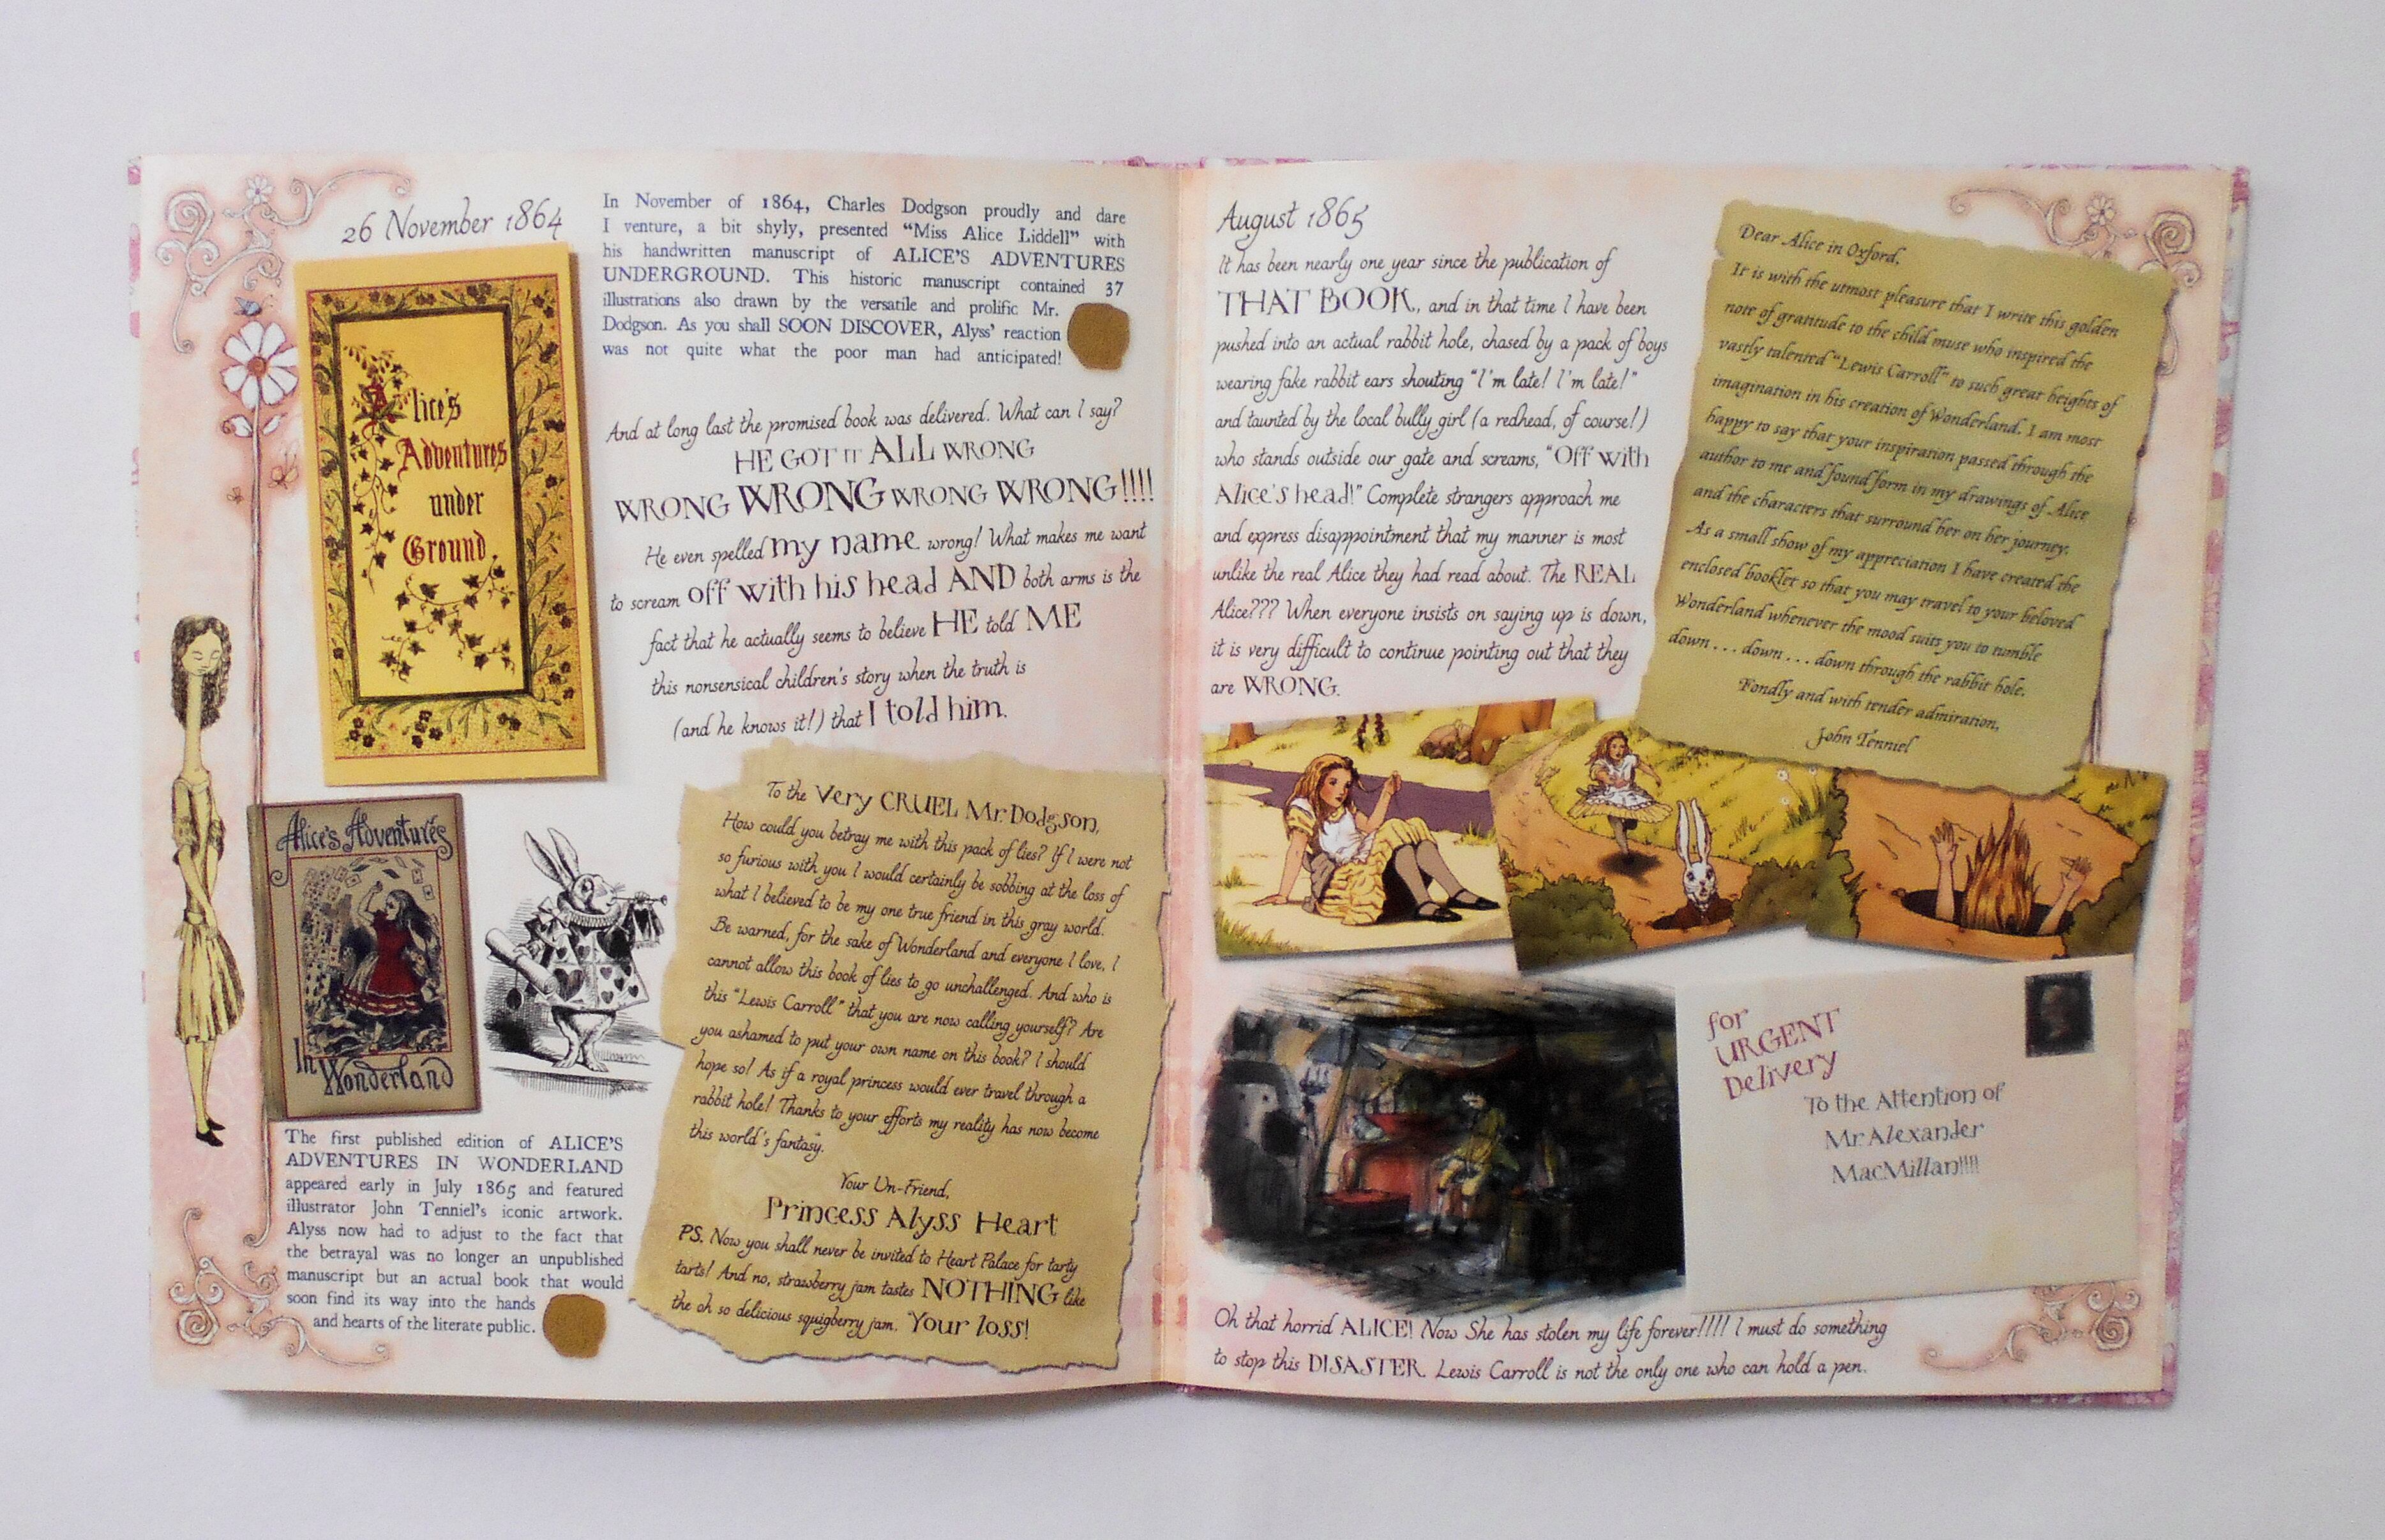 26 November 1864
Alice's
Adventures
under
Ground.
In November of 1864, Charles Dodgson proudly and dare
I venture, a bit shyly, presented “Miss Alice Liddell” with
his handwritten manuscript of ALICE'S ADVENTURES
UNDERGROUND. This historic manuscript contained 37
illustrations also drawn by the versatile and prolific Mr.
Dodgson. As you shall SOON DISCOVER, Alyss' reaction
was not quite what the poor man had anticipated!
And at long last the promised book was delivered. What can I say?
HE GOT IT ALL WRONG
WRONG WRONG WRONG WRONG!!!!
He even spelled my name wrong! What makes me want
to scream off with his head AND both arms is the
fact that he actually seems to believe HE told ME
this nonsensical children's story when the truth is
(and he knows it!) that I told him.
Alice's Adventures
In Wonderland
The first published edition of ALICE'S
ADVENTURES IN WONDERLAND
appeared early in July 1865 and featured
illustrator John Tenniel's iconic artwork.
Alyss now had to adjust to the fact that
the betrayal was no longer an unpublished
manuscript but an actual book that would
soon find its way into the hands
and hearts of the literate public.
To the Very CRUEL Mr. Dodgson,
How could you betray me with this pack of lies? If I were not
so furious with you I would certainly be sobbing at the loss of
what I believed to be my one true friend in this gray world.
Be warned, for the sake of Wonderland and everyone I love, I
cannot allow this book of lies to go unchallenged. And who is
this “Lewis Carroll” that you are now calling yourself? Are
you ashamed to put your own name on this book? I should
hope so! As if a royal princess would ever travel through a
rabbit hole! Thanks to your efforts my reality has now become
this world's fantasy.
Your Un-Friend,
Princess Alyss Heart
PS. Now you shall never be invited to Heart Palace for tarty
tarts! And no, strawberry jam tastes NOTHING like
the oh so delicious squigberry jam. Your loss!
August 1865
It has been nearly one year since the publication of
THAT BOOK, and in that time I have been
pushed into an actual rabbit hole, chased by a pack of boys
wearing fake rabbit ears shouting “I'm late! I'm late!”
and taunted by the local bully girl (a redhead, of course!)
who stands outside our gate and screams, “Off with
Alice's head!” Complete strangers approach me
and express disappointment that my manner is most
unlike the real Alice they had read about. The REAL
Alice??? When everyone insists on saying up is down,
it is very difficult to continue pointing out that they
are WRONG.
Dear Alice in Oxford,
It is with the utmost pleasure that I write this golden
note of gratitude to the child muse who inspired the
vastly talented “Lewis Carroll” to such great heights of
imagination in his creation of Wonderland. I am most
happy to say that your inspiration passed through the
author to me and found form in my drawings of Alice
and the characters that surround her on her journey.
As a small show of my appreciation I have created the
enclosed booklet so that you may travel to your beloved
Wonderland whenever the mood suits you to tumble
down . . . down . . . down through the rabbit hole.
Fondly and with tender admiration,
John Tenniel
for
URGENT
Delivery
To the Attention of
Mr. Alexander
MacMillan!!!!
Oh that horrid ALICE! Now She has stolen my life forever!!!! I must do something
to stop this DISASTER. Lewis Carroll is not the only one who can hold a pen.